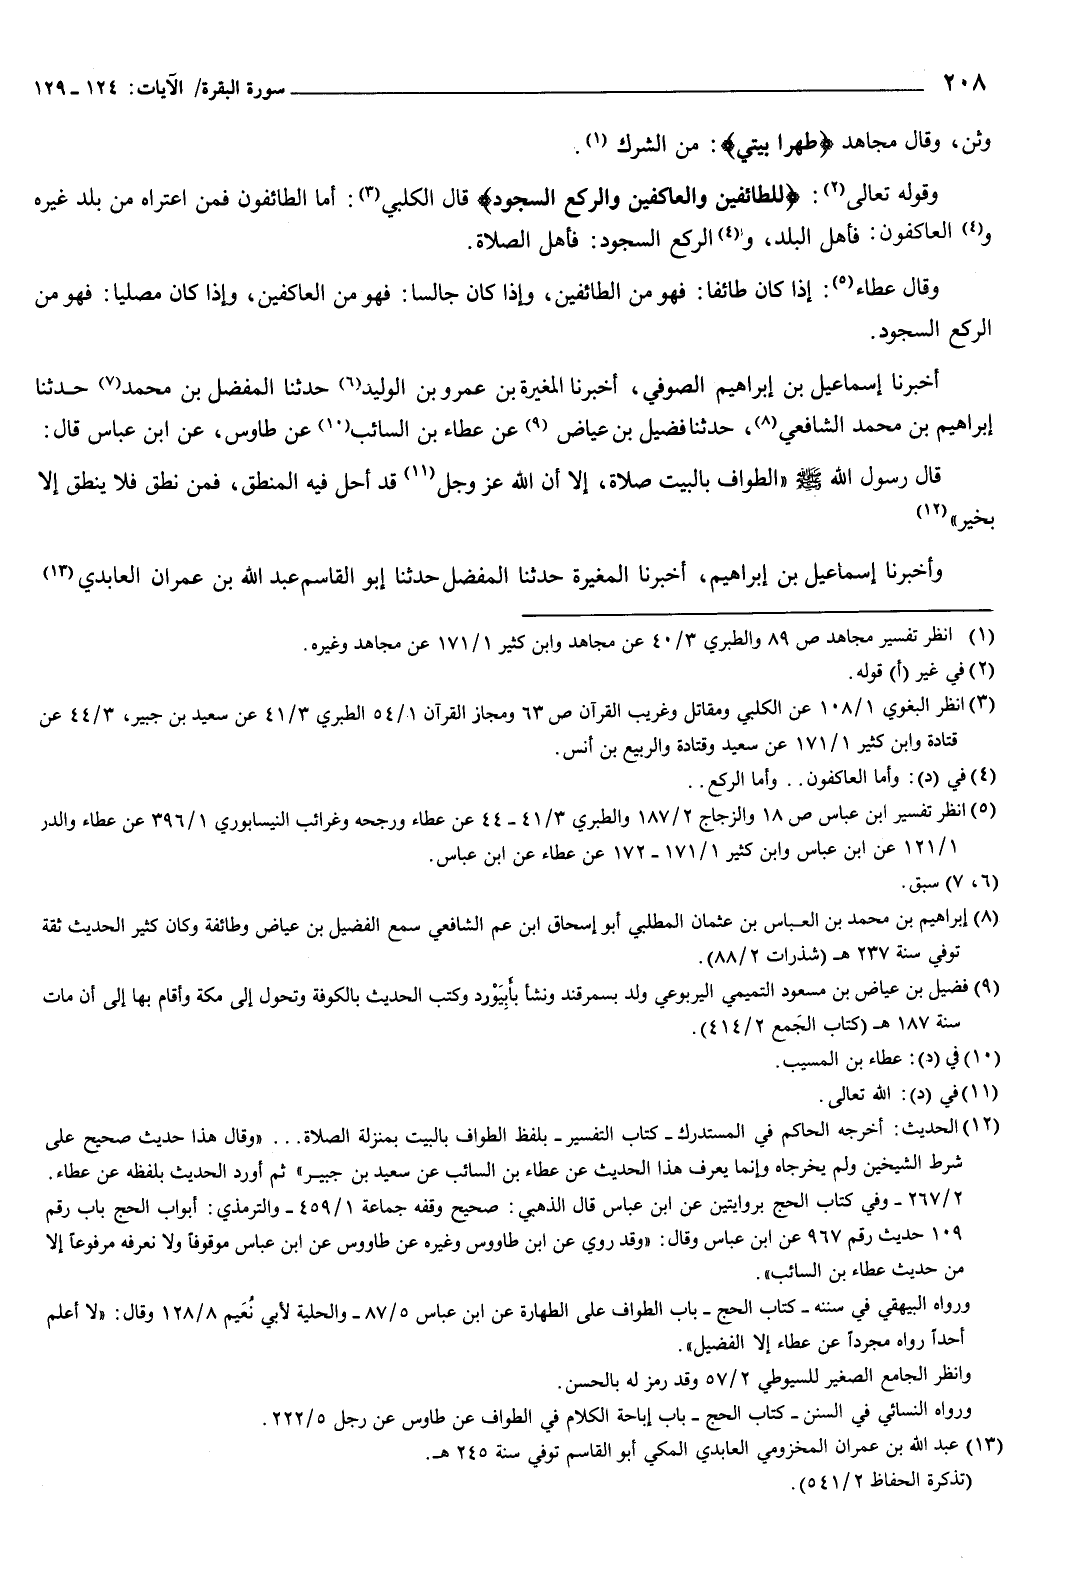 ٢٠٨ سورة البقرة/ الآيات: ١٢٤ ـ ١٢٩
وثن، وقال مجاهد ﴿طهرا بيتي﴾: من الشرك (١).
وقوله تعالى(٢): ﴿للطائفين والعاكفين والركع السجود﴾ قال الكلبي(٣): أما الطائفون فمن اعتراه من بلد غيره
و(٤) العاكفون: فأهل البلد، و(٤) الركع السجود: فأهل الصلاة.
وقال عطاء(٥): إذا كان طائفا: فهو من الطائفين، وإذا كان جالسا: فهو من العاكفين، وإذا كان مصليا: فهو من
الركع السجود.
أخبرنا إسماعيل بن إبراهيم الصوفي، أخبرنا المغيرة بن عمرو بن الوليد(٦) حدثنا المفضل بن محمد(٧) حدثنا
إبراهيم بن محمد الشافعي(٨)، حدثنا فضيل بن عياض (٩) عن عطاء بن السائب(١٠) عن طاوس، عن ابن عباس قال:
قال رسول الله ﷺ «الطواف بالبيت صلاة، إلا أن الله عز وجل(١١) قد أحل فيه المنطق، فمن نطق فلا ينطق إلا
بخير»(١٢)
وأخبرنا إسماعيل بن إبراهيم، أخبرنا المغيرة حدثنا المفضل حدثنا إبو القاسم عبد الله بن عمران العابدي (١٣)
(١) انظر تفسير مجاهد ص ٨٩ والطبري ٤٠/٣ عن مجاهد وابن كثير ١٧١/١ عن مجاهد وغيره.
(٢) في غير (أ) قوله.
(٣) انظر البغوي ١٠٨/١ عن الكلبي ومقاتل وغريب القرآن ص ٦٣ ومجاز القرآن ٥٤/١ الطبري ٤١/٣ عن سعيد بن جبير، ٤٤/٣ عن
قتادة وابن كثير ١٧١/١ عن سعيد وقتادة والربيع بن أنس.
(٤) في (د): وأما العاكفون.. وأما الركع..
(٥) انظر تفسير ابن عباس ص ١٨ والزجاج ١٨٧/٢ والطبري ٤١/٣ ـ ٤٤ عن عطاء ورجحه وغرائب النيسابوري ٣٩٦/١ عن عطاء والدر
١٢١/١ عن ابن عباس وابن كثير ١٧١/١ ـ ١٧٢ عن عطاء عن ابن عباس.
(٦، ٧) سبق.
(٨) إبراهيم بن محمد بن العباس بن عثمان المطلبي أبو إسحاق ابن عم الشافعي سمع الفضيل بن عياض وطائفة وكان كثير الحديث ثقة
توفي سنة ٢٣٧ هـ (شذرات ٨٨/٢).
(٩) فضيل بن عياض بن مسعود التميمي اليربوعي ولد بسمرقند ونشأ بأَبِيَوْرد وكتب الحديث بالكوفة وتحول إلى مكة وأقام بها إلى أن مات
سنة ١٨٧ هـ (كتاب الجَمع ٤١٤/٢).
(١٠) في (د): عطاء بن المسيب.
(١١) في (د): الله تعالى.
(١٢) الحديث: أخرجه الحاكم في المستدرك ـ كتاب التفسير ـ بلفظ الطواف بالبيت بمنزلة الصلاة... «وقال هذا حديث صحيح على
شرط الشيخين ولم يخرجاه وإنما يعرف هذا الحديث عن عطاء بن السائب عن سعيد بن جبير» ثم أورد الحديث بلفظه عن عطاء.
٢٦٧/٢ ـ وفي كتاب الحج بروايتين عن ابن عباس قال الذهبي: صحيح وقفه جماعة ٤٥٩/١ ـ والترمذي: أبواب الحج باب رقم
١٠٩ حديث رقم ٩٦٧ عن ابن عباس وقال: «وقد روي عن ابن طاووس وغيره عن طاووس عن ابن عباس موقوفاً ولا نعرفه مرفوعاً إلا
من حديث عطاء بن السائب».
ورواه البيهقي في سننه ـ كتاب الحج ـ باب الطواف على الطهارة عن ابن عباس ٨٧/٥ ـ والحلية لأبي نُعَيم ١٢٨/٨ وقال: «لا أعلم
أحداً رواه مجرداً عن عطاء إلا الفضيل».
وانظر الجامع الصغير للسيوطي ٥٧/٢ وقد رمز له بالحسن.
ورواه النسائي في السنن ـ كتاب الحج ـ باب إباحة الكلام في الطواف عن طاوس عن رجل ٢٢٢/٥.
(١٣) عبد الله بن عمران المخزومي العابدي المكي أبو القاسم توفي سنة ٢٤٥ هـ.
(تذكرة الحفاظ ٥٤١/٢).